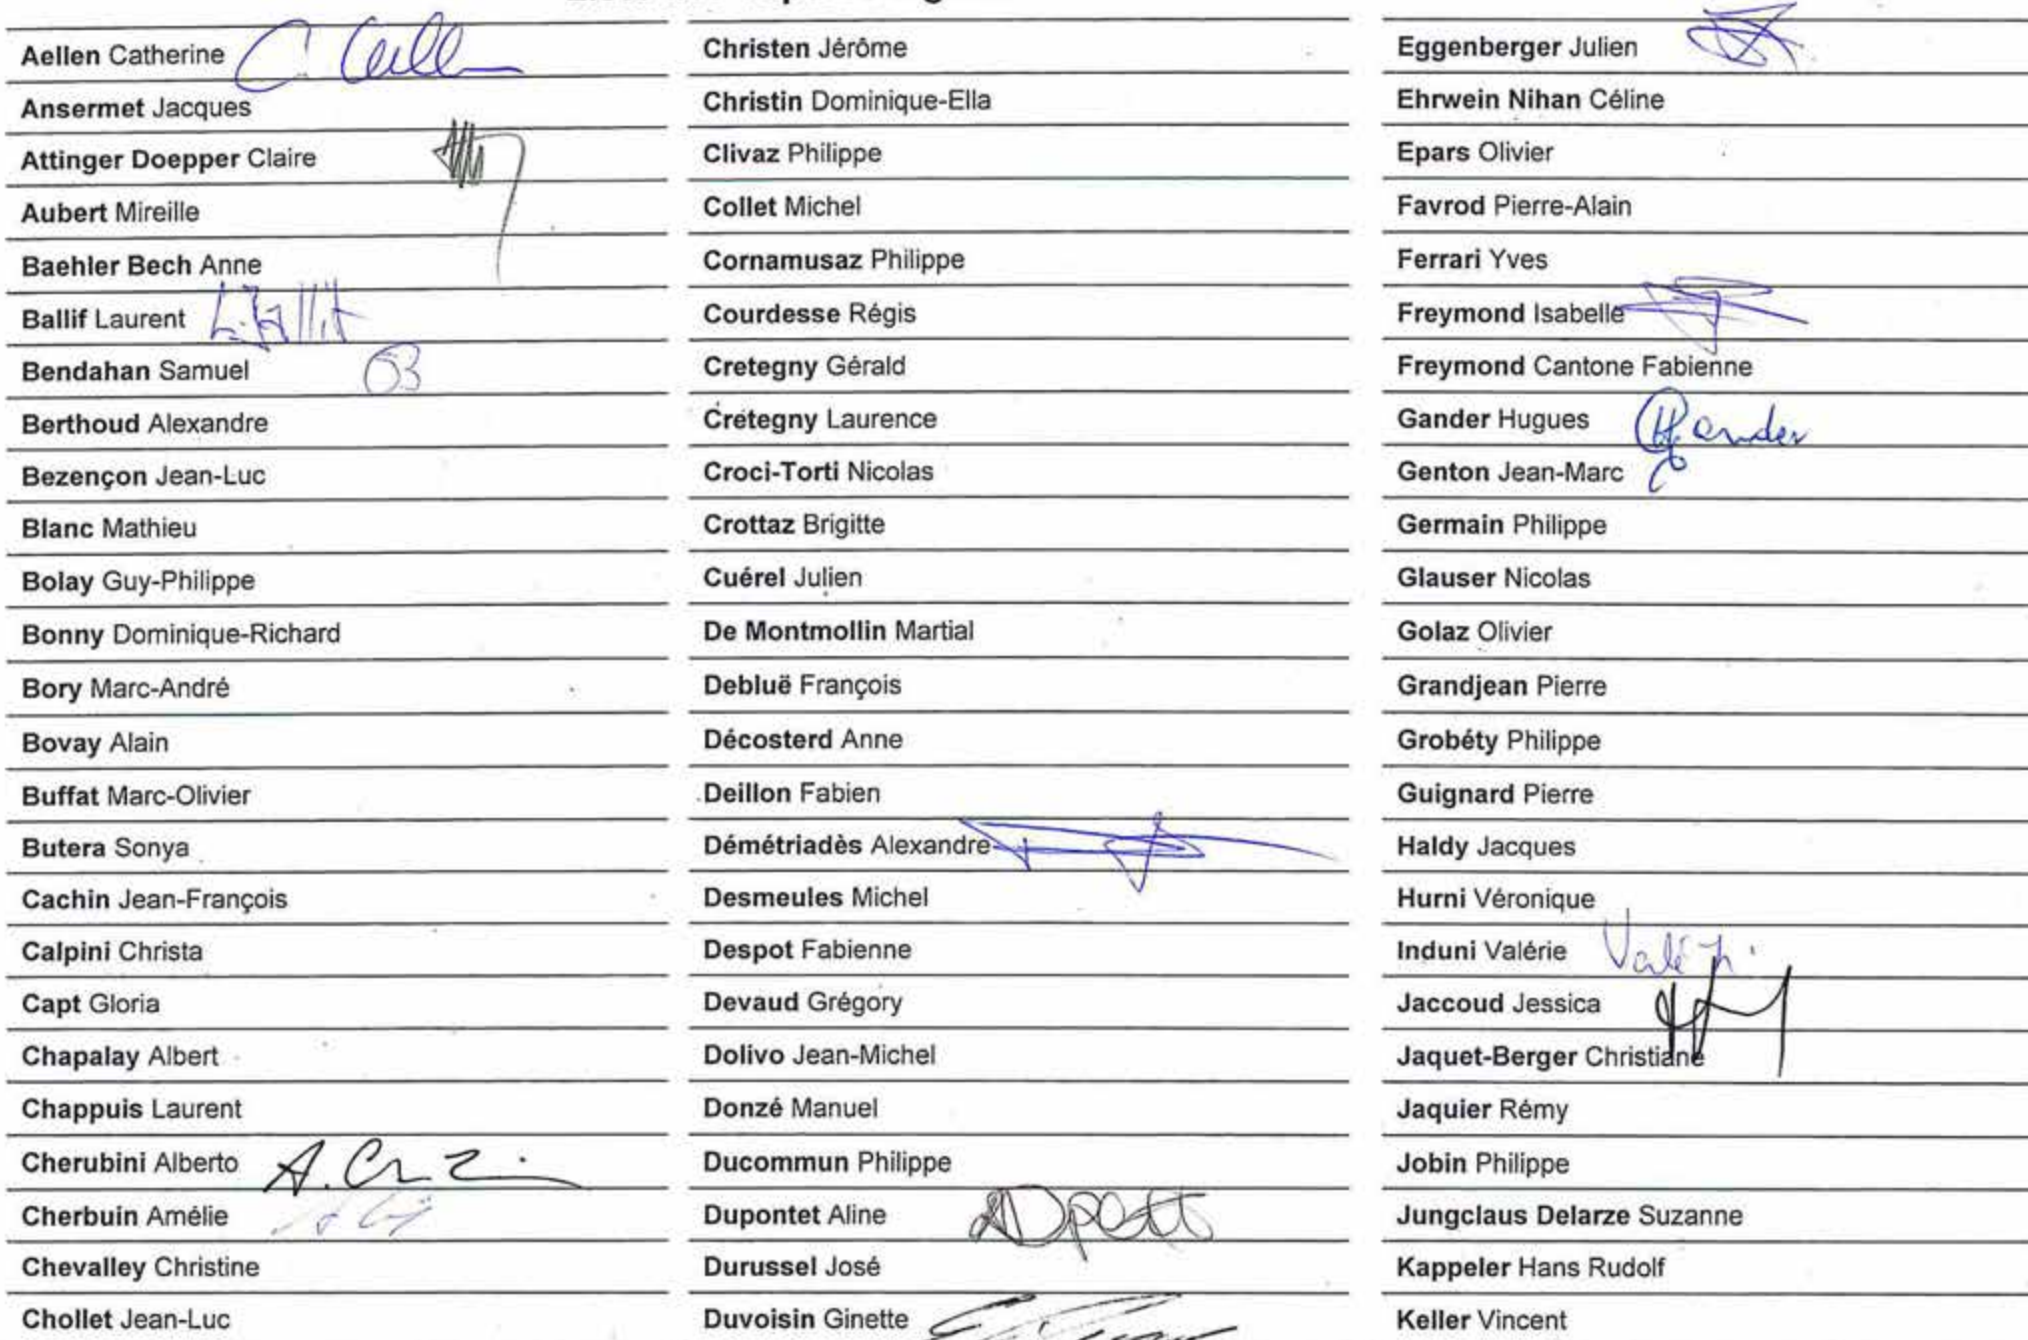 Aellen Catherine
Ansermet Jacques
Attinger Doepper Claire
Aubert Mireille
Baehler Bech Anne
Ballif Laurent
Bendahan Samuel
Berthoud Alexandre
Bezençon Jean-Luc
Blanc Mathieu
Bolay Guy-Philippe
Bonny Dominique-Richard
Bory Marc-André
Bovay Alain
Buffat Marc-Olivier
Butera Sonya
Cachin Jean-François
Calpini Christa
Capt Gloria
Chapalay Albert
Chappuis Laurent
Cherubini Alberto
Cherbuin Amélie
Chevalley Christine
Chollet Jean-Luc
Christen Jérôme
Christin Dominique-Ella
Clivaz Philippe
Collet Michel
Cornamusaz Philippe
Courdesse Régis
Cretegny Gérald
Cretegny Laurence
Croci-Torti Nicolas
Crottaz Brigitte
Cuérel Julien
De Montmollin Martial
Debluë François
Décosterd Anne
Deillon Fabien
Démétriadès Alexandre
Desmeules Michel
Despot Fabienne
Devaud Grégory
Dolivo Jean-Michel
Donzé Manuel
Ducommun Philippe
Dupontet Aline
Durussel José
Duvoisin Ginette
Eggenberger Julien
Ehrwein Nihan Céline
Epars Olivier
Favrod Pierre-Alain
Ferrari Yves
Freymond Isabelle
Freymond Cantone Fabienne
Gander Hugues
Genton Jean-Marc
Germain Philippe
Glauser Nicolas
Golaz Olivier
Grandjean Pierre
Grobéty Philippe
Guignard Pierre
Haldy Jacques
Hurni Véronique
Induni Valérie
Jaccoud Jessica
Jaquet-Berger Christiane
Jaquier Rémy
Jobin Philippe
Jungclaus Delarze Suzanne
Kappeler Hans Rudolf
Keller Vincent